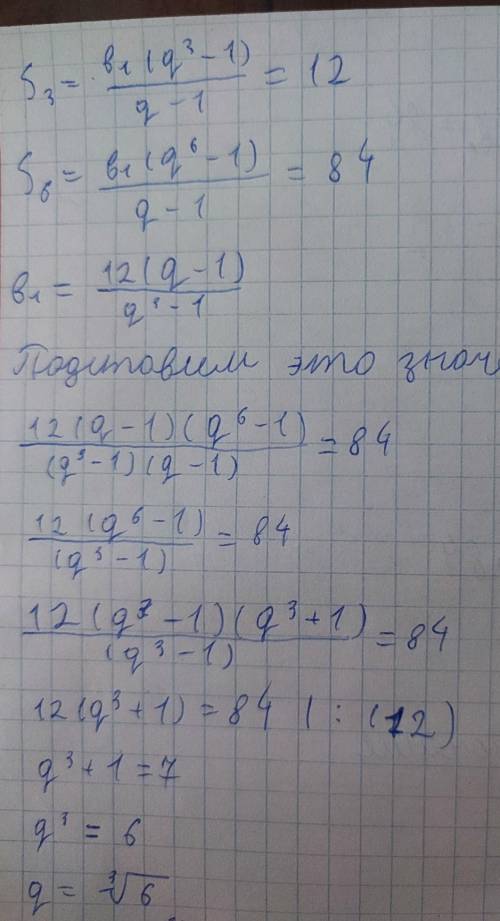 S₃ = в₁(q³ - 1) / q - 1 = 12
S₆ = в₁(q⁶ - 1) / q - 1 = 84
в₁ = 12(q - 1) / q³ - 1
Подставим это знач
12(q - 1)(q⁶ - 1) / (q³ - 1)(q - 1) = 84
12(q⁶ - 1) / (q³ - 1) = 84
12(q³ - 1)(q³ + 1) / (q³ - 1) = 84
12(q³ + 1) = 84 | : (12)
q³ + 1 = 7
q³ = 6
q = ³√6